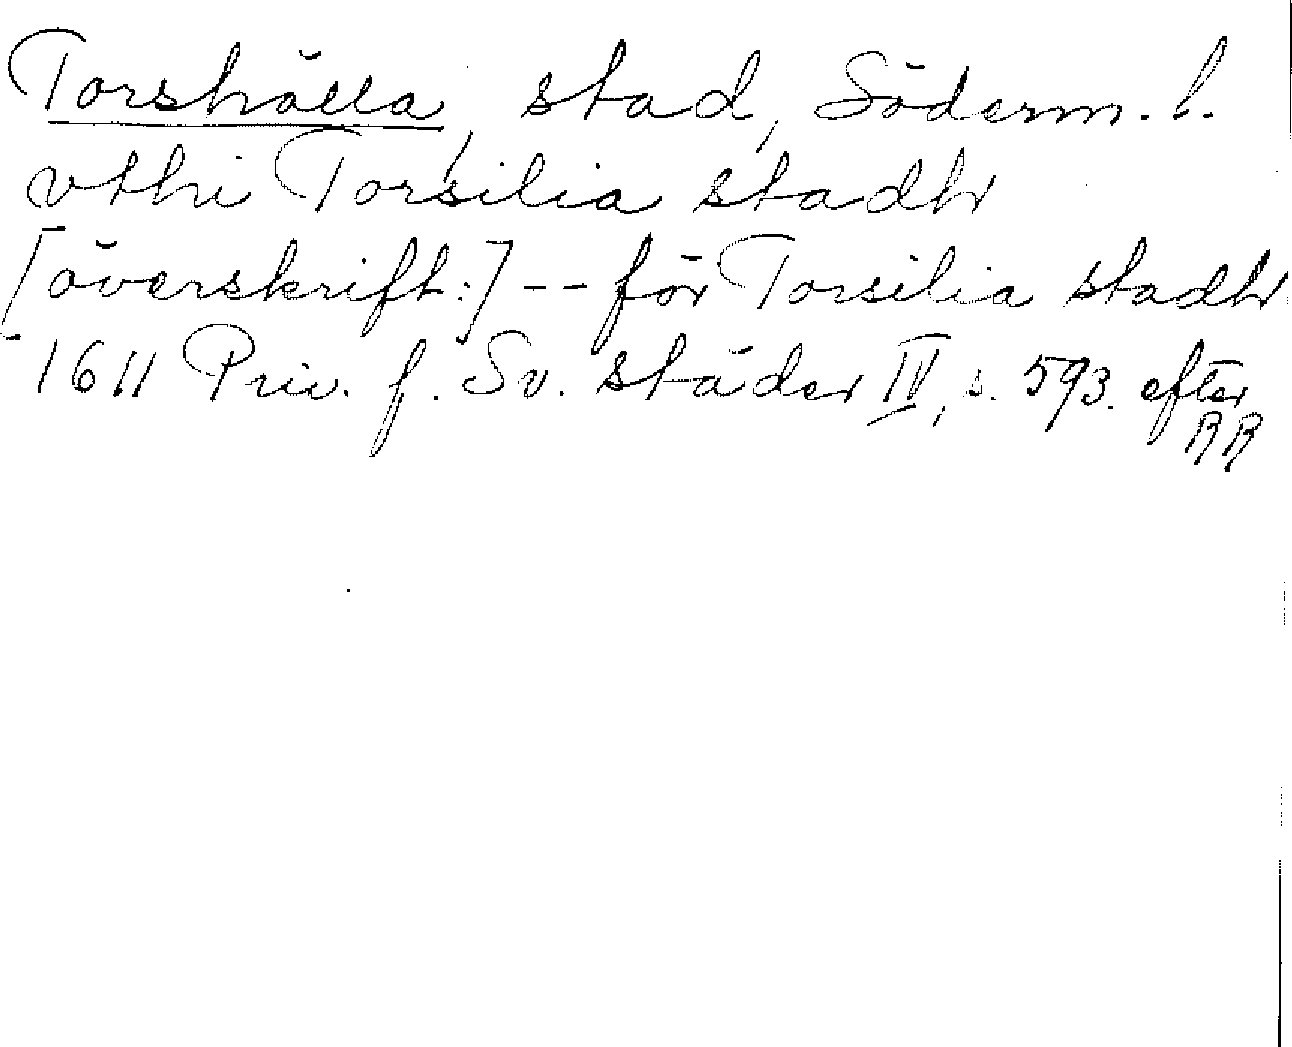 Torshälla, stad, Söderm. l.
vthi Torsilia stadh
[överskrift:] -- för Torsilia stadh
1611 Priv. f. Sv. städer IV, s. 593. efter
RR